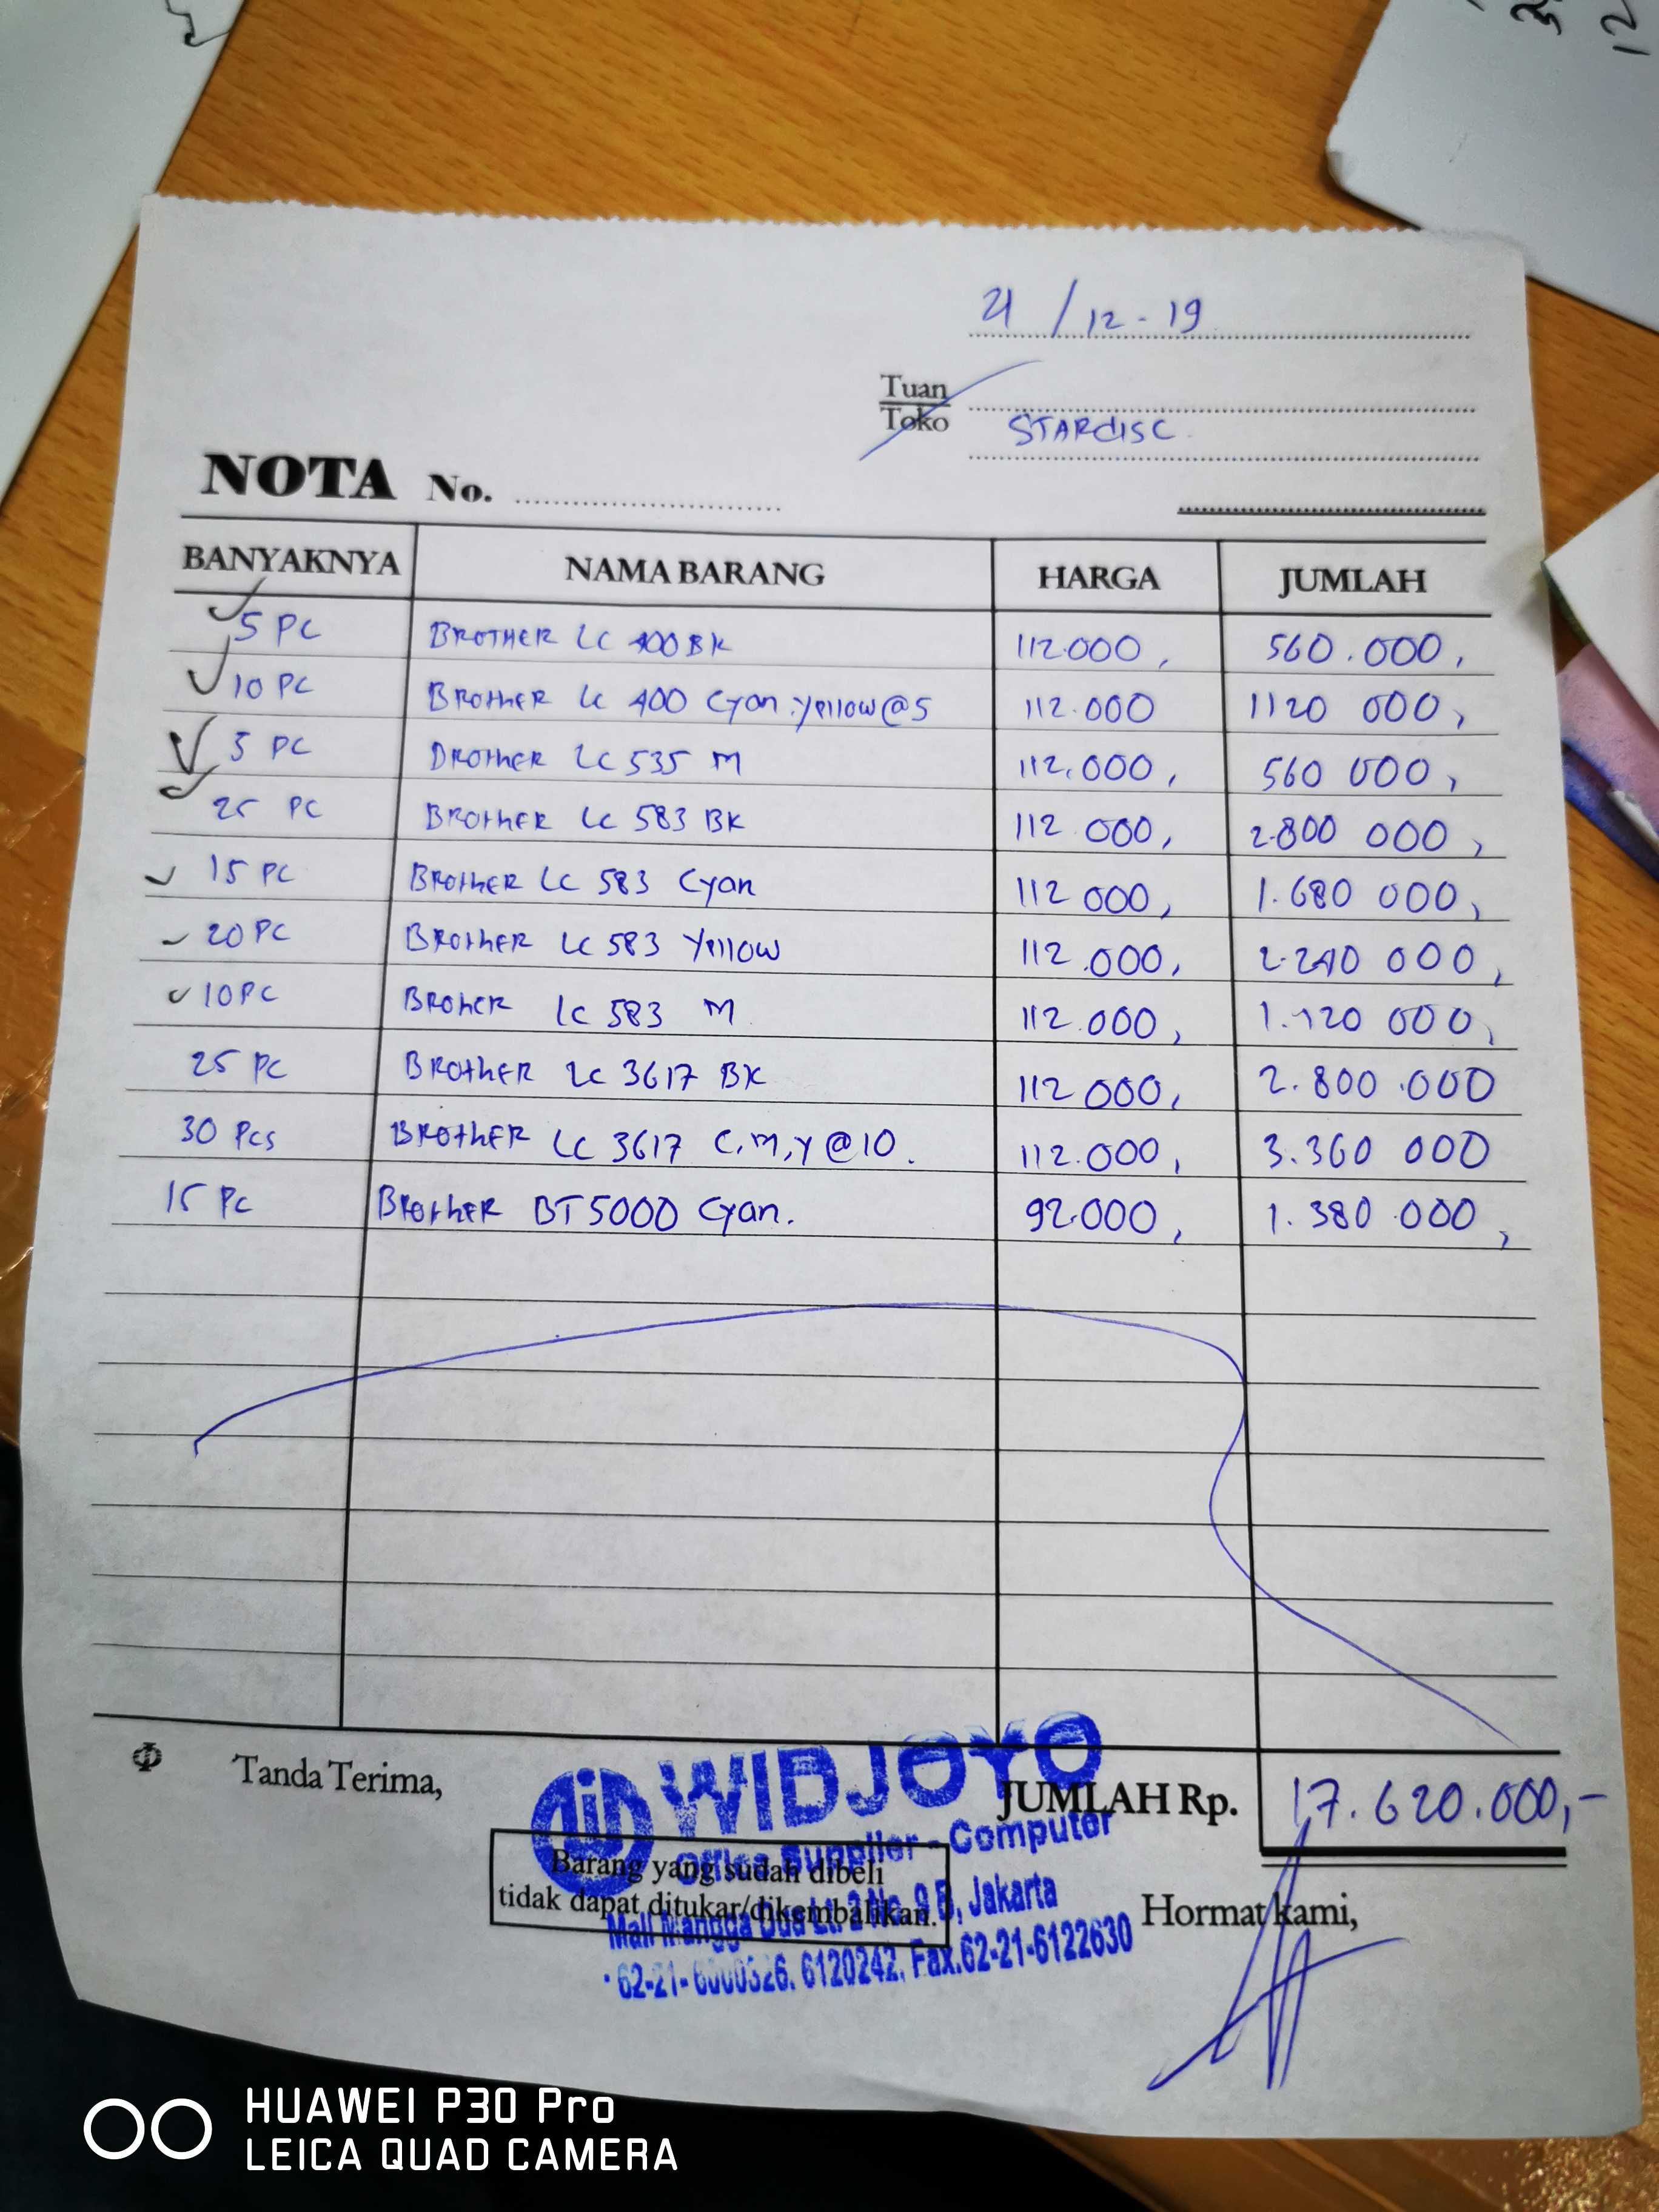 21 / 12 - 19
Tuan
Toko
STARDISC
NOTA No.
BANYAKNYA NAMA BARANG HARGA JUMLAH
5 PC BROTHER LC 400 BK 112.000, 560.000,
10 PC BROTHER LC 400 Cyan.Yellow@5 112.000 1120 000,
5 PC BROTHER LC 535 M 112.000, 560 000,
25 PC BROTHER LC 583 BK 112 000, 2.800 000,
15 PC BROTHER LC 583 Cyan 112 000, 1.680 000,
20 PC BROTHER LC 583 Yellow 112.000, 2.240 000,
10 PC BROHER LC 583 M 112.000, 1.120 000,
25 PC BROTHER LC 3617 BK 112 000, 2.800.000
30 Pcs BROTHER LC 3617 C,M,Y @10. 112.000, 3.360 000
15 PC BROTHER BT5000 Cyan. 92.000, 1.380.000,
Tanda Terima,
WIDJOYO
JUMLAH Rp. 17.620.000,-
Office Supplier - Computer
Barang yang sudah dibeli
tidak dapat ditukar/dikembalikan.
Mall Mangga Dua Lt. 2 No. 9 B, Jakarta
62-21- 6120242, Fax.62-21-6122630
Hormat kami,
HUAWEI P30 Pro
LEICA QUAD CAMERA